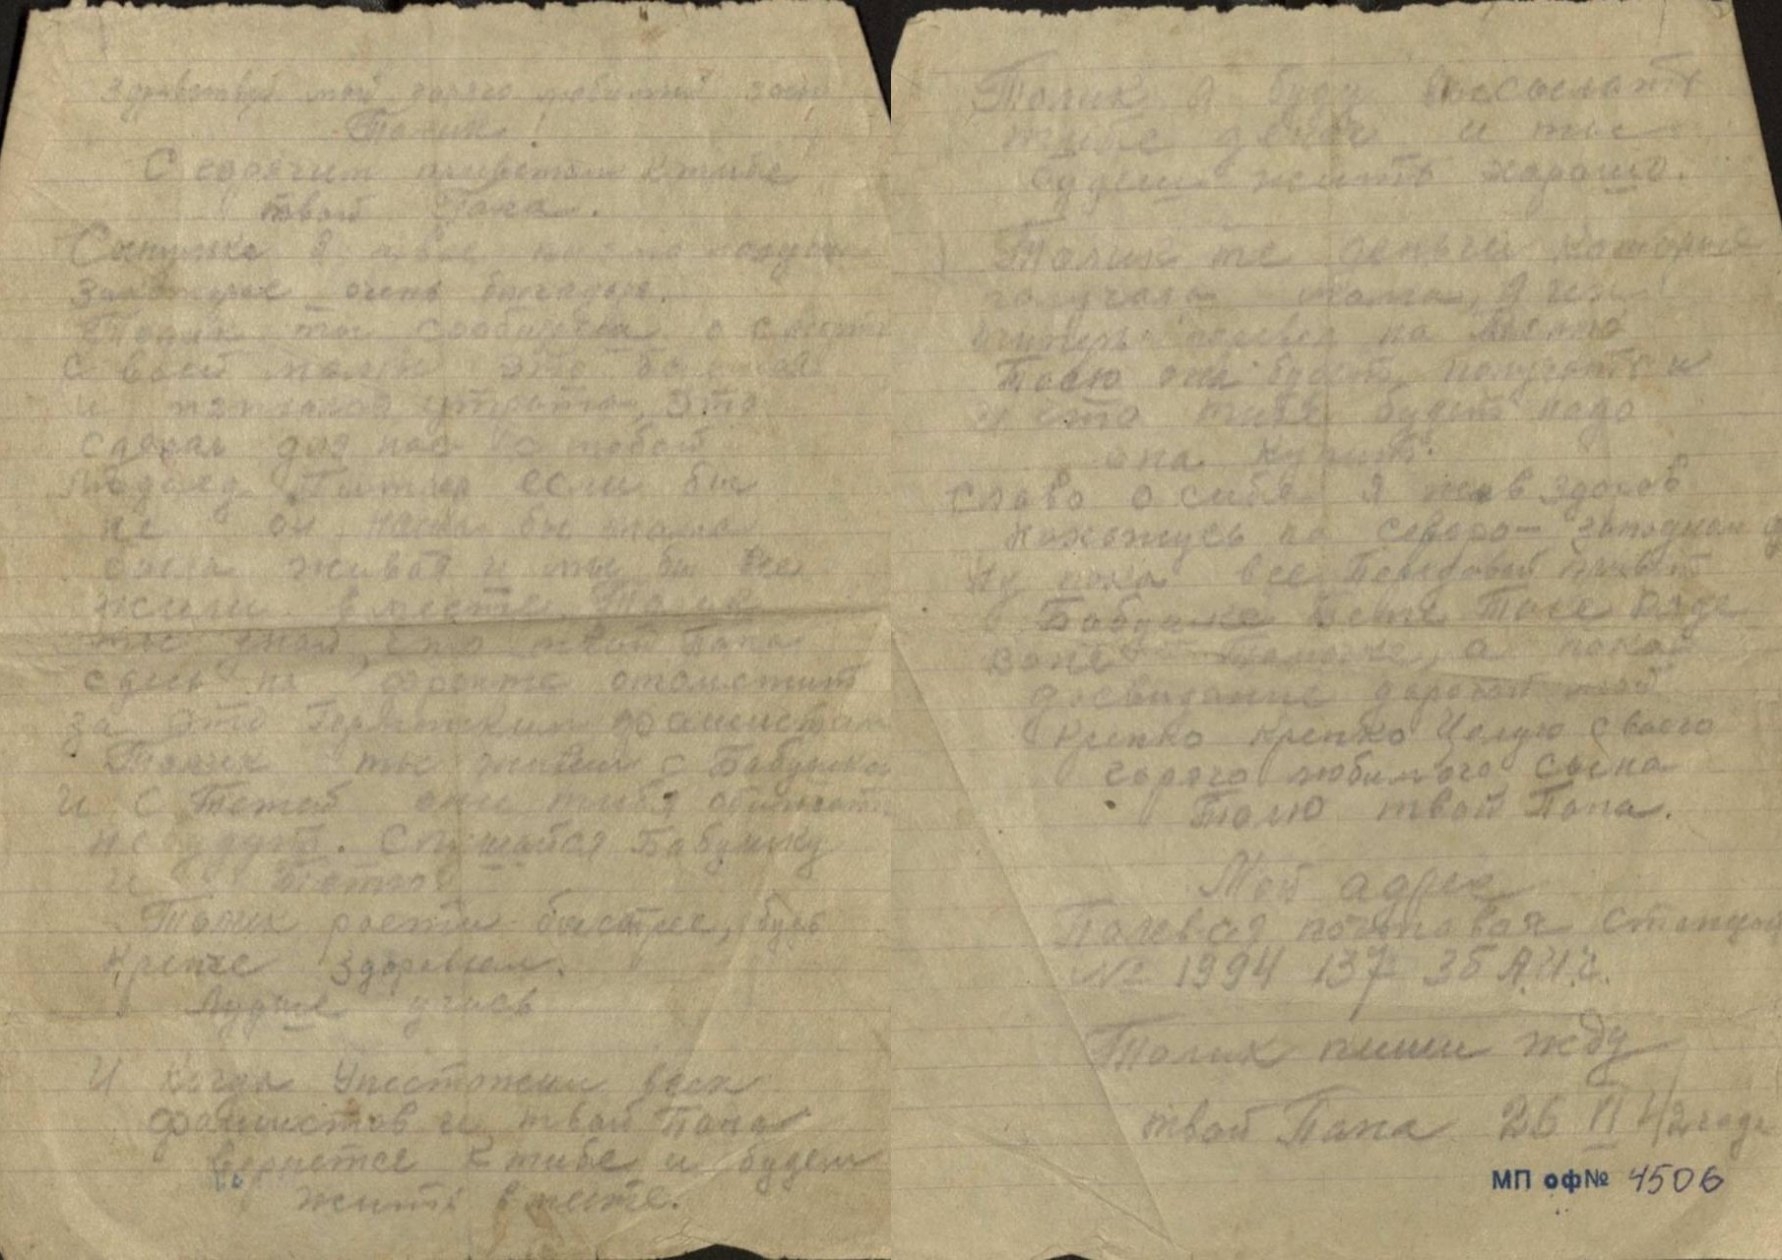 Здравствуй мой горяго любимый сыно
Толик!
С горячим приветом к тибе
твой Папа.
Сынушка Я твое письмо получил
за которое очень благодарю.
Толик ты сообщаеш о смерти
Своей мамы это большая
и тяжолая утрата, Это
сделал для нас с тобой
Людоед Гитлер если бы
не он наша бы мама
была живая и мы бы все
жили вместе. Толик
ты знай, что твой Папа
сдесь на фронте отомстит
за это Германским фашистам
Толик ты живи с Бабушкой
и с Тетей они тибя обижать
не будут. Слушайся Бабушку
и Тетю
Толик расти быстрее, будь
крепче здоровьем.
Лудше учись
И когда Унистожим всех
фашистов и твой Папа
вернется к тибе и будем
жить вместе.
Толик Я буду высосылать
тибе денег и ты
будеш жить харашо.
Толик те деньги которые
получала мама, Я их
перевел на
Тосю она будет получать и
что тибе будет надо
она купит.
Слово о себе Я жив здоров
нахожусь на северо-западном ф
Ну пока все Передовай привет
Бабушке Тете Тосе Дяде
Ване, а пока
досвидание дорогой мой
Крепко крепко Целую своего
горяго любимого сына
Толю твой Папа.
Мой адрес
Полевая почтовая станция
№ 1994 137 ЗБ А.И.Ч.
Толик пиши жду
твой Папа 26 VI 42 года
МП оф№ 4506